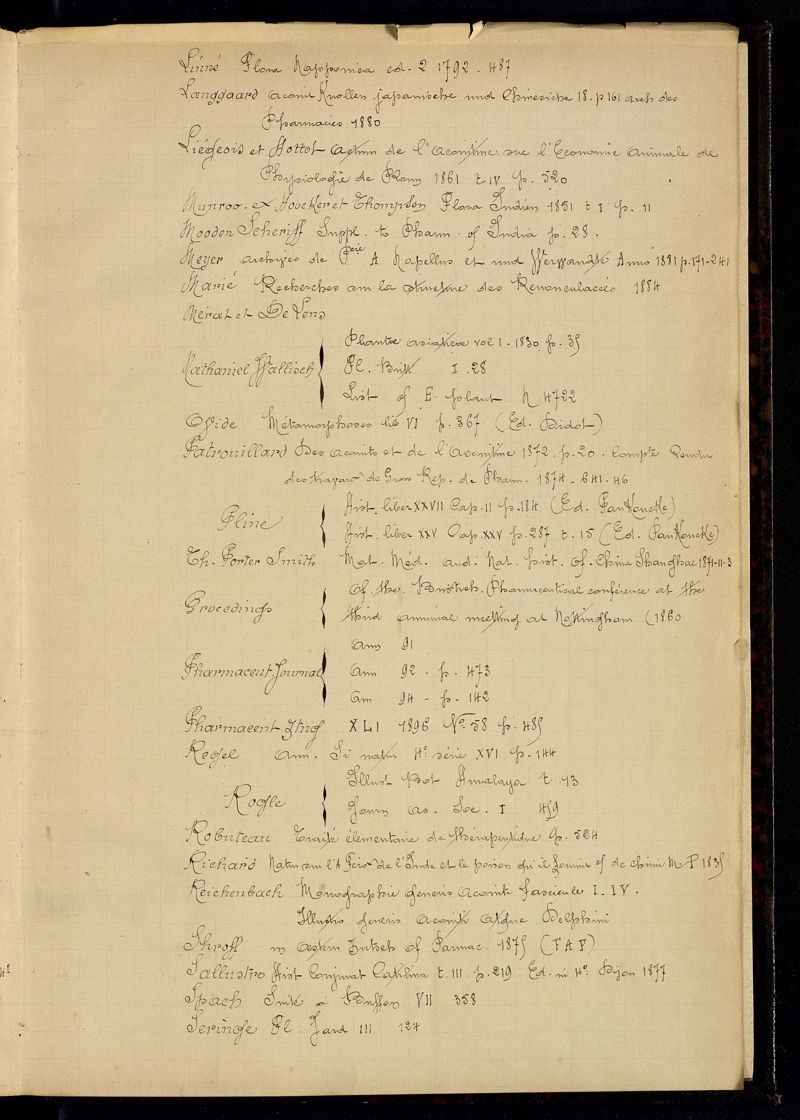 Linné Flora Lapponica ed. 2 1792. 437
Langgaard Aconit Knollen japanische und Chinesiche 18. p 161 arch des
Pharmacies 1880
Liégeois et Hottot Action de l'Aconitine sur l'Economie Animale de
Physiologie de Rom 1861 t IV p. 520
Munroo. ex Hoocker et Thompson Flora Indien 1851 t I p. 11
Mooden Scheriff Suppl. to Pharm. of India p. 28.
Meyer archives de Pcie A Napellus et und Werwandte Anno 1881 p. 171-241
Marié Recherches sur la structure des Renonculacées 1884
Mérat et De Lens
Plantæ asiaticæ vol 1. 1830. p. 35
Nathaniel Wallisch Fl. Brit I. 28
List of E- plant N 4722
Ovide Métamorphoses lib VI p. 367 (Ed. Didot)
Patrouillard Des aconits et de l'Aconitine 1872. p. 20. Compte Rendu
des travaux de Gros Rep. de Pharm. 1874. 641. 46
Hist. liber XXVII Cap. 11 p. 184 (Ed. Panckoncke)
Pline
Hist. liber XXV Cap. XXV p. 287 t. 15 (Ed. Panckoncke)
Th. Porter Smith Mat. Méd. and. Nat. hist. of. China Shanghac 1871-11-3
of the. British. Pharmaceutical conférence at the
Procedings
third annimal meeting at Nottingham (1860
Ann 91
Pharmaceut. Journal Ann 92 - p. 473
Am 94 - p. 142
Pharmaceut Ztng XLI 1896 No. 58 p. 485
Regel Ann. Si natur 4e série XVI p. 144
Illust Bot Himalaya t 13
Rogle
Journ as. Soc. I 459
Robuteau Traité élementaire de thérapeutique p. 524
Richard Natur sur l'A Ferox de l'Inde et le poison qu'il fournie J de chimi M. P 1835
Reichenbach Monographie generis Aconiti fascicule I. IV.
Illustrio generis aconiti atque Delphini
Shroff in Parmac. 1875 (F A F)
Sallustro Hist Conjurat Catilina t. III. p. 219. Ed. in 4o. Dijon 1877
Spach Suite à Buffon VII 358
Seringe Fl. Jard III 124